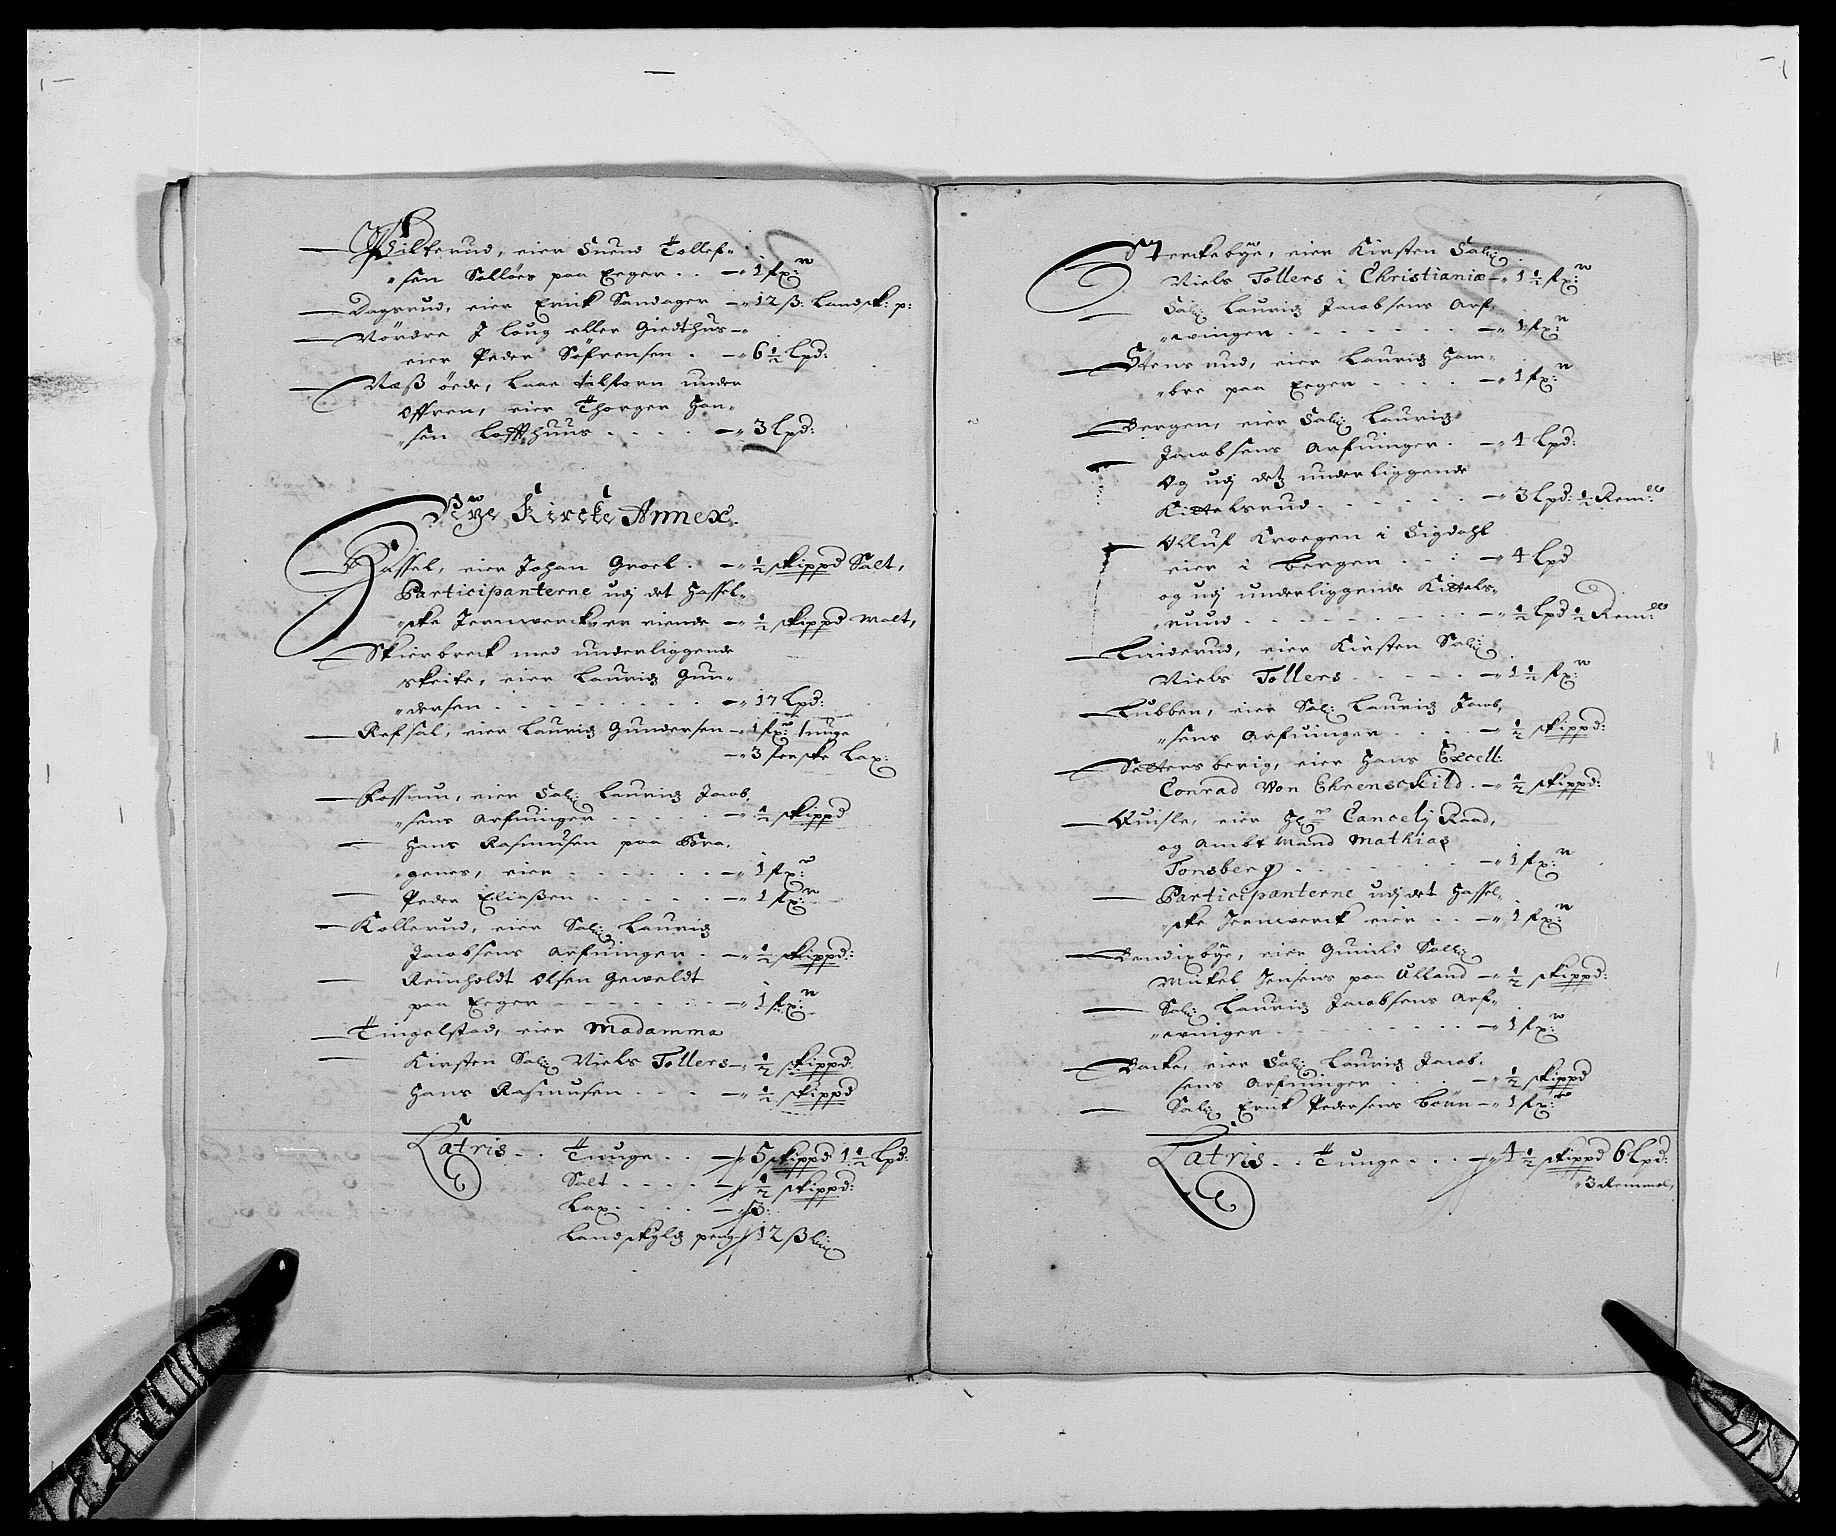 Wilterud, eier Suend Tollef„
„sen Solløes paa Eeger . . — „ 1 fx:
Dagsrud, eier Erick Sandager — „ 12 ß: Landsk: p:
Nördre J loug eller Giedthus — „
eier Peder Söfrensen . — „ 6 ½ lpd:
Næß öede, Laae tilforn under
Offren, eier Thorger Han„
„sen Loffthuus . . . . — „ 3 lpd:
Nye Kircke Annex.
Hassel, eier Johan Groel . — „ ½ skippd Salt,
Participanterne udj det Hassel„
„ske Jernwerck, er eiende — „ ½ skippd Malt,
Skierbreck med underliggende
Skeite, eier Lauridz Gun„
„dersen . . . . . . . . — „ 17 lpd:
Refsal, eier Lauridz Gundersen — „ 1 fx: tunge
— „ 3 ferske Lax:
Fossum, eier Sal: Lauridz Jacob„
„sens Arfuinger . . . . . — „ ½ skippd
Hans Rasmusen paa Bra„
„genes, eier . . . . . . — „ 1 fx:
Peder Eliaßen . . . . . — „ 1 fx:
Kollerud, eier Sal: Lauridz
Jacobsens Arfuinger . — „ ½ skippd:
Reinholdt Olsen Geweldt
paa Eeger . . . . . . — „ 1 fx:
Tingelstad, eier Madamma
Kirsten Sal: Niels Tollers — „ ½ skippd
Hans Rasmusen . . . — „ ½ skippd
Latris . . Tunge . . — „ 5 skippd 1 ½ lpd:
Salt . . . . — „ ½ skippd:
Lax . . . . — „ 3:
Landskyld peng — „ 12 ß
Sterckebye, eier Kirsten Sal:
Niels Tollers i Christianiæ — „ 1 ½ fx:
Sal: Lauridz Jacobsens Arf„
„winger . . . . . . . — „ 1 fx:
Stensrud, eier Lauridz Ham„
„bre paa Eeger . . . . — „ 1 fx:
Bergen, eier Sal: Lauridz
Jacobsens Arfuinger . — „ 4 lpd:
Og udj det underliggende
Kittelsrud . . . . . . — „ 3 lpd: ½ Rem:
Olluf Kroegen i Sigdahl
eier i Bergen . . : — „ 4 lpd
og udj underliggende Kittels„
„ruud . . . . . . . . — „ ½ lpd ½ Rem:
Luiderud, eier Kirsten Sal:
Niels Tollers . . . . . — „ 1 ½ fx:
Lubben, eier Sal: Lauridz Jacob„
„sens Arfuinger . . . . — „ ½ skippd:
Settersberig, eier Hans Excell:
Conrad Von Ehrenschild . — „ ½ skippd:
eier Hr: Cancelj Raad,
og Ambt Mand Mathias
Tonsberg . . . . . . . — „ 1 fx:
Participanterne udj det Hassel„
„ske Jernwerck eier . . — „ 1 fx:
Bendixbye, eier Gunild Sal:
Mickel Jensens paa Ulland — „ ½ skippd:
Sal: Lauridz Jacobsens Arf„
„wuiger . . . . . . . . — „ 1 fx:
Backe, eier Sal: Lauridz Jacob„
sens Arfuinger . . . . — „ ½ skippd
Sal: Erick Pedersens Börn — „ 1 fx:
Latris . . Tunge . . . — „ 4 ½ skippd 6 lpd:
„ 3 Remmel,